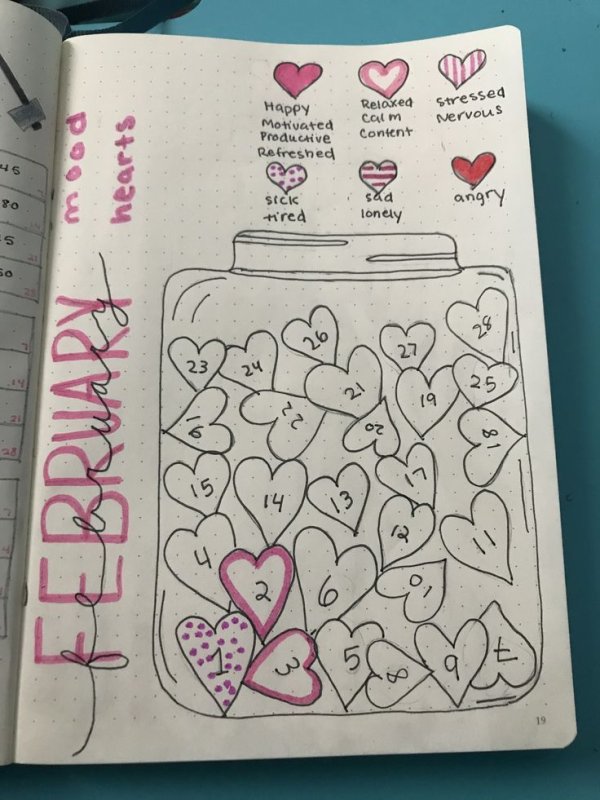 mood
hearts
FEBRUARY
february
Happy
Motivated
Productive
Refreshed
Relaxed
Calm
Content
Stressed
Nervous
sick
tired
sad
lonely
angry
28
26
27
23
24
21
19
25
16
22
20
18
15
14
13
17
4
12
11
2
6
10
1
3
5
8
9
7
19
45
80
5
50
14
21
28